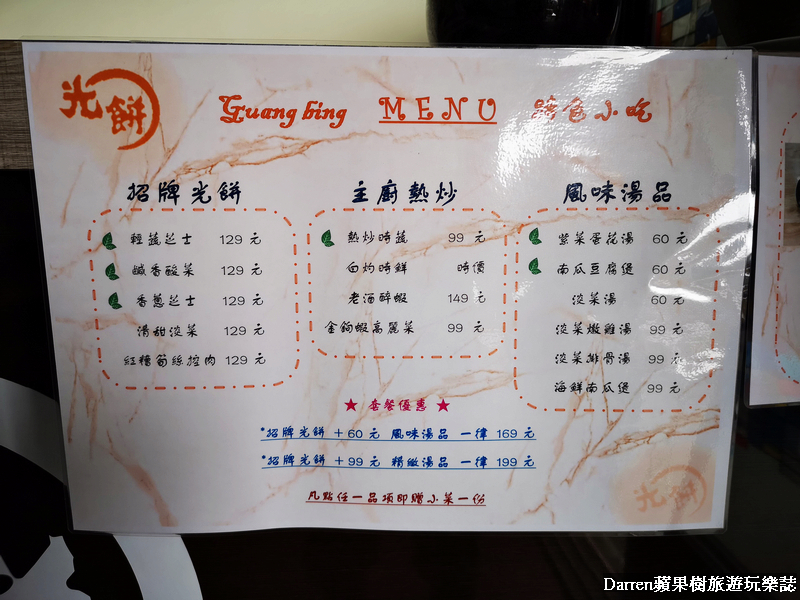 光餅
Guang bing MENU 踏色小吃
招牌光餅
輕蔬芝士 129 元
鹹香酸菜 129 元
香蔥芝士 129 元
滑甜淡菜 129 元
紅糟筍絲控肉 129 元
主廚熱炒
熱炒時蔬 99 元
白灼時鮮 時價
老酒醉蝦 149 元
金鉤蝦高麗菜 99 元
風味湯品
紫菜蛋花湯 60 元
南瓜豆腐煲 60 元
淡菜湯 60 元
淡菜燉雞湯 99 元
淡菜排骨湯 99 元
海鮮南瓜煲 99 元
★ 套餐優惠 ★
*招牌光餅 + 60 元 風味湯品 一律 169 元
*招牌光餅 + 99 元 精緻湯品 一律 199 元
凡點任一品項即贈小菜一份
光餅
Darren蘋果樹旅遊玩樂誌